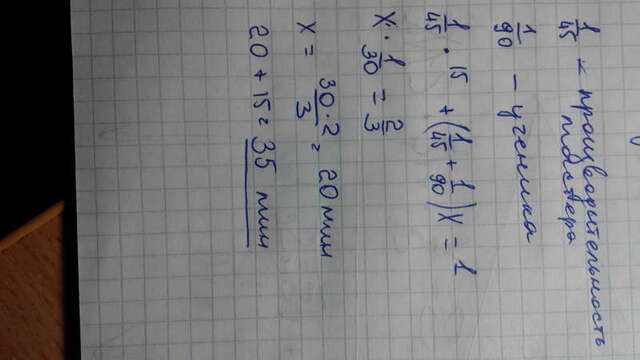 1/45 – производительность
мастера
1/90 – ученика
1/45 · 15 + (1/45 + 1/90) x = 1
x · 1/30 = 2/3
x = 30·2/3 = 20 мин
20 + 15 = 35 мин